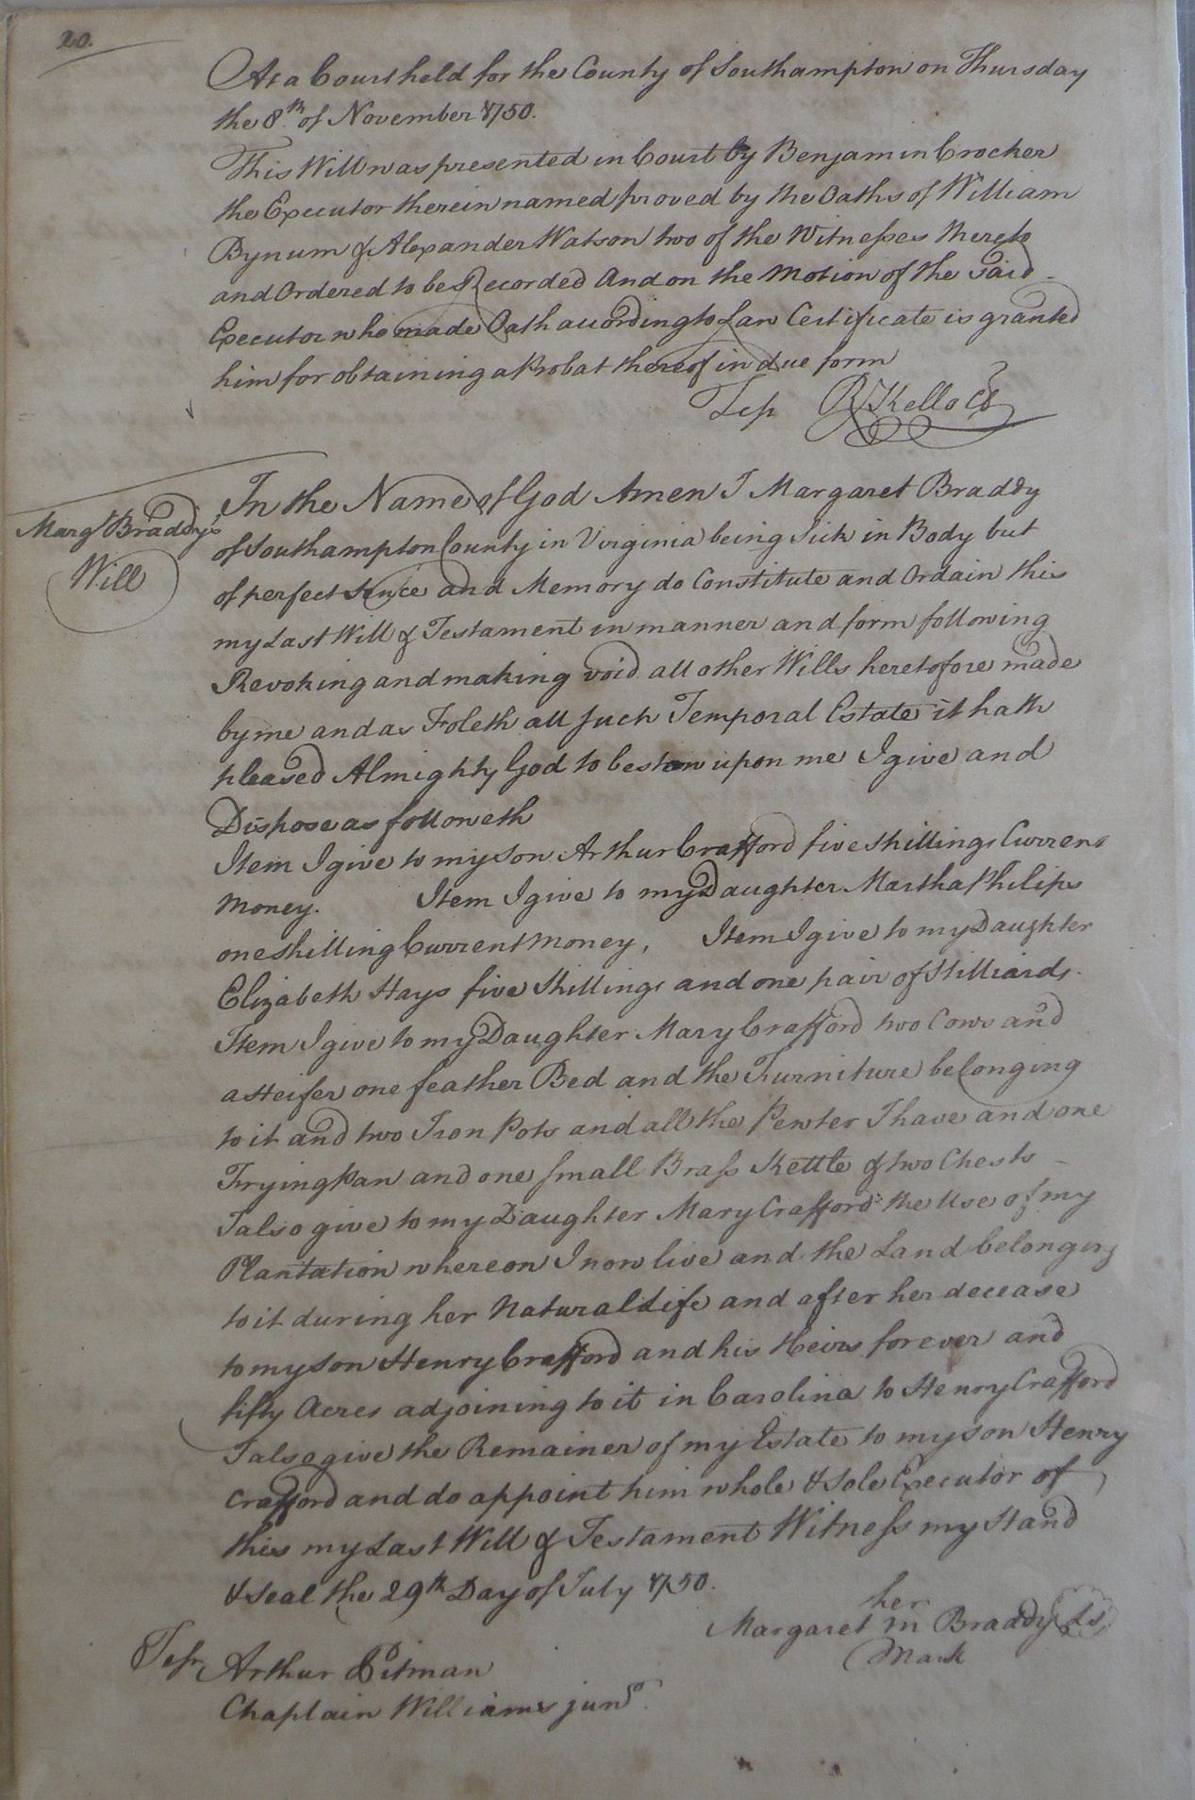 20.
At a Court held for the County of Southampton on Thursday
the 8th of November 1750.
This Will was presented in Court by Benjamin Crocker
the Executor therein named proved by the Oaths of William
Bynum & Alexander Watson two of the Witnesses thereto
and Ordered to be Recorded And on the Motion of the said
Executor who made Oath according to Law Certificate is granted
him for obtaining a Probat thereof in due form
Test R Kello Cl
Margt Braddy's
Will
In the Name of God Amen I Margaret Braddy
of Southampton County in Virginia being Sick in Body but
of perfect Sence and Memory do Constitute and Ordain this
my Last Will & Testament in manner and form following
Revoking and making void all other Wills heretofore made
by me and as Foleth all such Temporal Estate it hath
pleased Almighty God to bestow upon me I give and
Dispose as followeth
Item I give to my Son Arthur Crafford five shillings Current
Money. Item I give to my Daughter Martha Philips
one shilling Current Money, Item I give to my Daughter
Elizabeth Hays five Shillings and one pair of Stilliards.
Item I give to my Daughter Mary Crafford two Cows and
a Heifer one feather Bed and the Furniture belonging
to it and two Iron Pots and all the Pewter I have and one
Frying Pan and one small Brass Kettle & two Chests
I also give to my Daughter Mary Crafford the Use of my
Plantation whereon I now live and the Land belonging
to it during her Natural Life and after her decease
to my Son Henry Crafford and his Heirs forever and
fifty Acres adjoining to it in Carolina to Henry Crafford
I also give the Remainer of my Estate to my Son Henry
Crafford and do appoint him whole & Sole Executor of
this my Last Will & Testament Witness my Hand
& Seal the 29th Day of July 1750.
her
Margaret m Braddy Ls
Mark
Test Arthur Pitman
Chaplain Williams junr